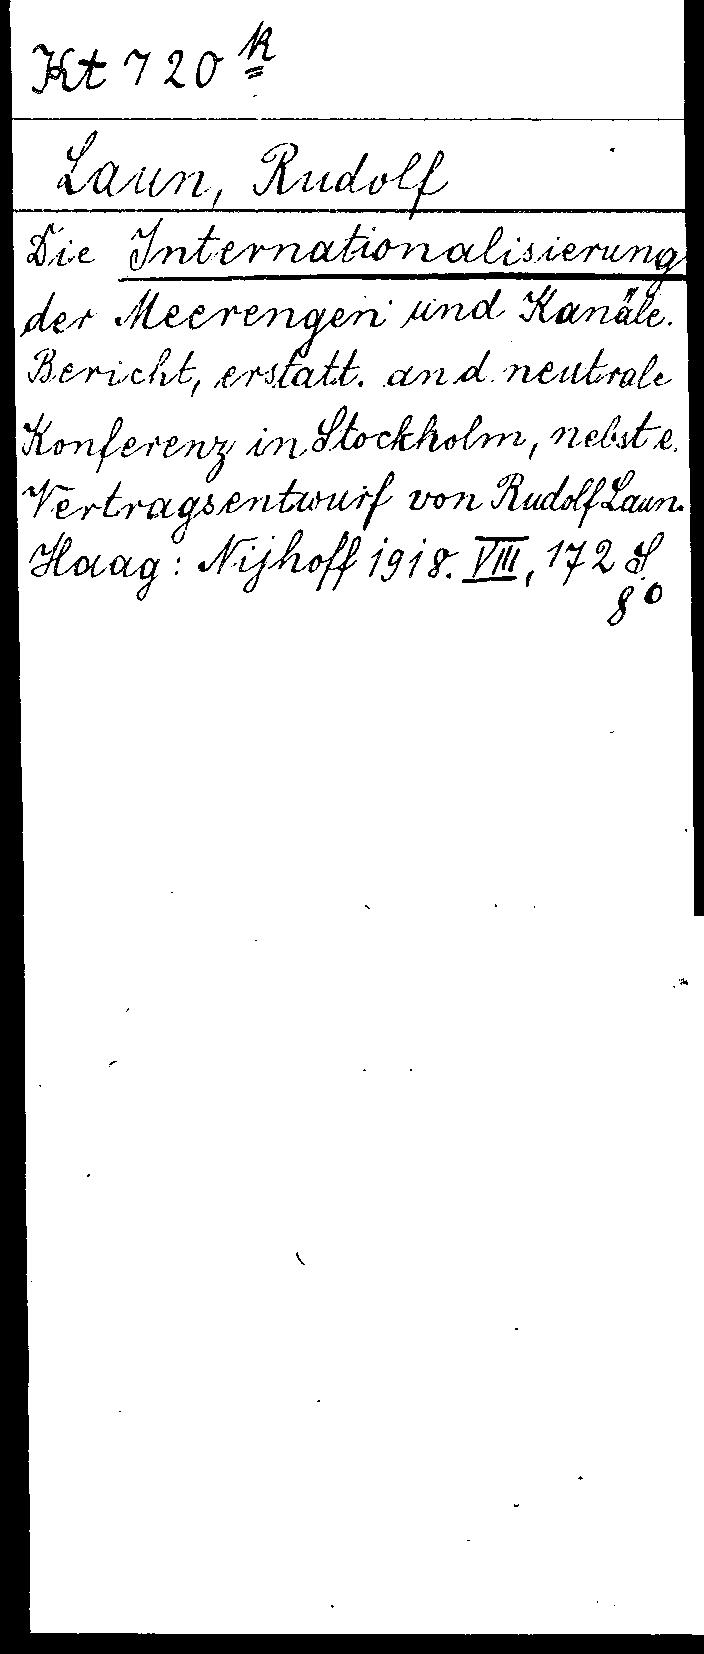 Kt 720 k
Laun, Rudolf
Die Internationalisierung
der Meerengen und Kanäle.
Bericht, erstatt. an d. neutrale
Konferenz in Stockholm, nebst e.
Vertragsentwurf von Rudolf Laun.
Haag: Nijhoff 1918. VIII, 172 S.
8°